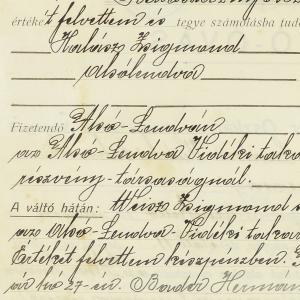 értéket felvettem és tegye számolásba tud
Halász Zsigmond
Alsólendva
Fizetendő Alsó-Lendván
az Alsó-Lendva Vidéki taka
részvény-társaságnál.
A váltó hátán: Weisz Zsigmond s
az Alsó-Lendva-Vidéki takar
Értékét felvettem készpénzben.
év hó 27-én. Bader Hermán